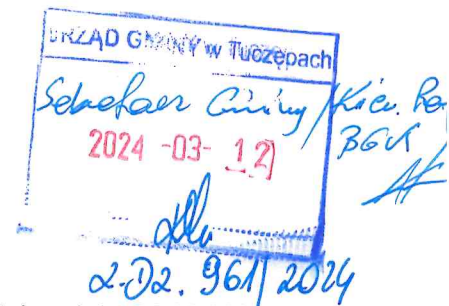 URZĄD GMINY w Tuczępach
Sekretarz Gminy / Kier. Re
BGK
2024 -03- 12
2-D2. 961/2024